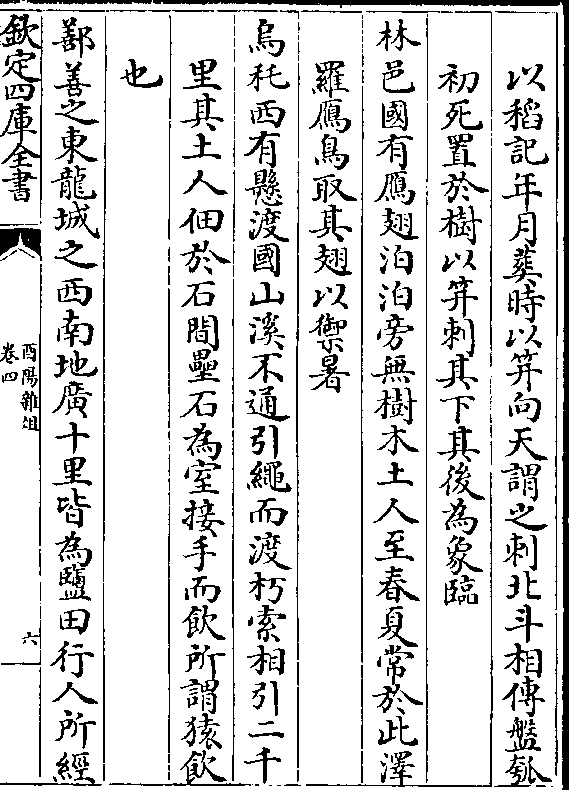 以稻記年月葬時以笄向天謂之刺北斗相傳盤瓠
初死置於樹以笄刺其下其後為象臨
林邑國有鴈翅泊泊旁無樹木土人至春夏常於此澤
羅鴈鳥取其翅以禦暑
烏秅西有懸渡國山溪不通引繩而渡朽索相引二千
里其土人佃於石間壘石為室接手而飲所謂猿飲
也
鄯善之東龍城之西南地廣十里皆為鹽田行人所經
欽定四庫全書
酉陽雜俎
卷四
六